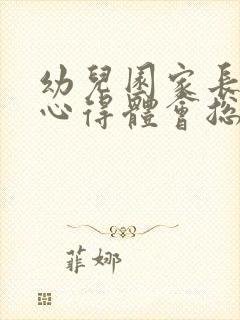 幼兒園家長
心得體會總
菲娜